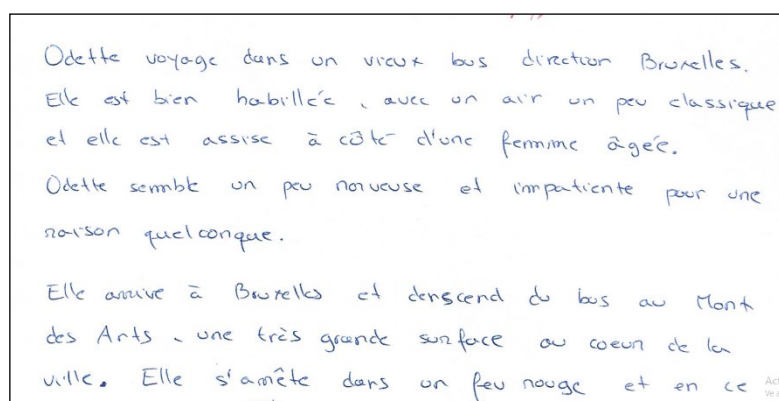 Odette voyage dans un vieux bus direction Bruxelles.
Elle est bien habillée, avec un air un peu classique
et elle est assise à côté d'une femme âgée.
Odette semble un peu nerveuse et impatiente pour une
raison quelconque.
Elle arrive à Bruxelles et denscend du bus au Mont
des Arts, une très grande surface au coeur de la
ville. Elle s'arrête dans un feu rouge et en ce